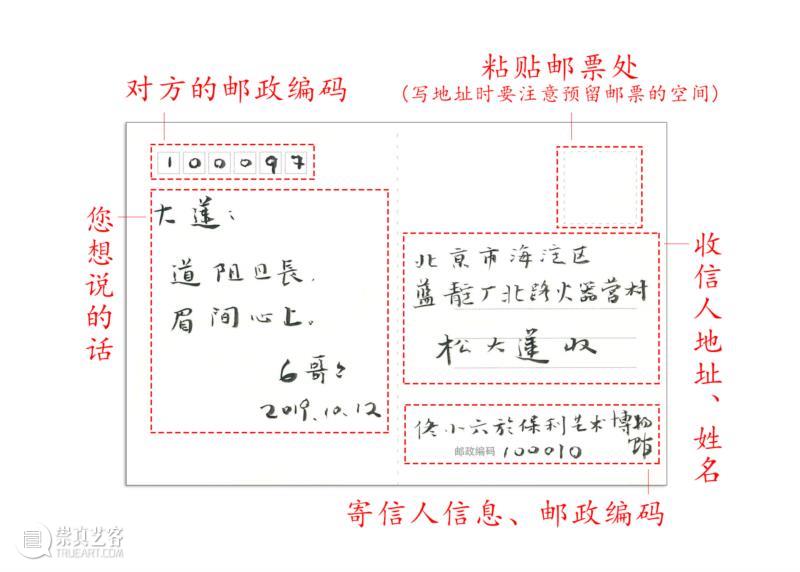 对方的邮政编码
粘贴邮票处
(写地址时要注意预留邮票的空间)
100097
您想说的话
大莲：
道阻且長，
眉间心上。
6哥哥
2019.10.12
北京市海淀区
蓝靛厂北路火器营村
松大莲收
收信人地址、姓名
佟小六於保利艺术博物馆
邮政编码 100010
寄信人信息、邮政编码
崇真艺客
TRUEART.COM